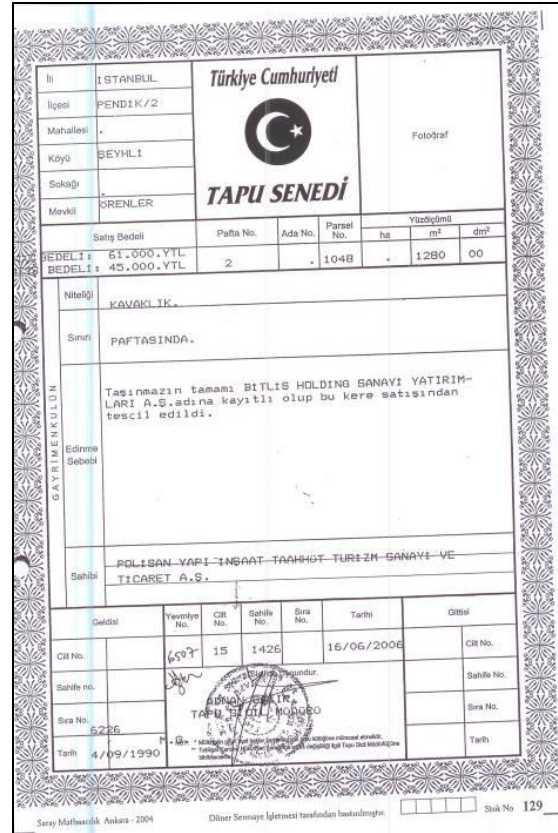 İli ISTANBUL
İlçesi PENDIK/2
Mahallesi .
Köyü ŞEYHLI
Sokağı .
Mevkii ÖRENLER
Türkiye Cumhuriyeti
TAPU SENEDİ
Fotoğraf
Satış Bedeli Pafta No. Ada No. Parsel No. Yüzölçümü
ha m² dm²
BEDELI: 61.000.YTL
BEDELI: 45.000.YTL
2 . 1048 . 1280 00
GAYRİMENKULÜN
Niteliği KAVAKLIK.
Sınırı PAFTASINDA.
Edinme Sebebi
Taşınmazın tamamı BITLIS HOLDING SANAYI YATIRIM-
LARI A.Ş.adına kayıtlı olup bu kere satışından
tescil edildi.
Sahibi
POLISAN YAPI INŞAAT TAAHHÜT TURIZM SANAYI VE
TICARET A.Ş.
Geldisi Yevmiye No. Cilt No. Sahife No. Sıra No. Tarihi Gittisi
Cilt No. 6507 15 1426 16/06/2006 Cilt No.
Sahife no. Sahife No.
Sıra No. 6226 Sıra No.
Tarih 4/09/1990 Tarih
TAPU SİCİL MÜDÜRÜ
Saray Matbaacılık Ankara - 2004
Döner Sermaye İşletmesi tarafından bastırılmıştır.
Stok No 129